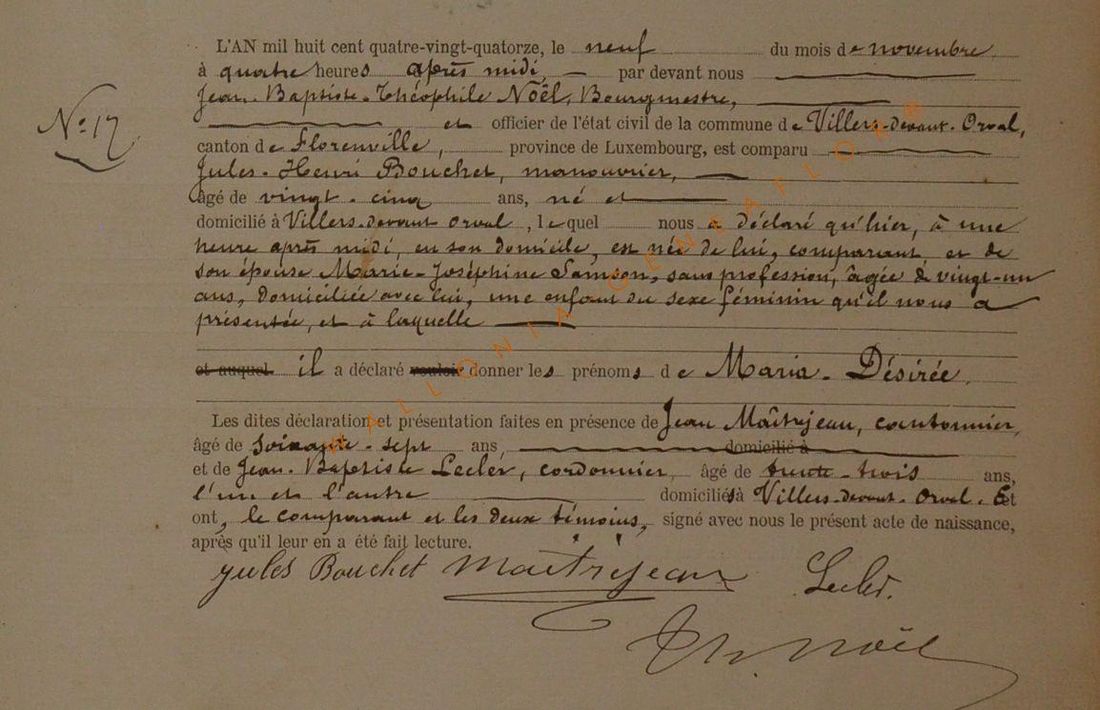 L'AN mil huit cent quatre-vingt-quatorze, le neuf du mois de novembre
à quatre heures après midi, par devant nous
Jean-Baptiste-Théophile Noël, Bourgmestre,
et officier de l'état civil de la commune de Villers-devant-Orval,
N° 17
canton de Florenville, province de Luxembourg, est comparu
Jules-Henri Bouchet, manouvrier,
âgé de vingt-cinq ans, né et
domicilié à Villers-devant Orval, lequel nous a déclaré qu'hier, à une
heure après midi, en son domicile, est née de lui, comparant, et de
son épouse Marie-Joséphine Samson, sans profession, âgée de vingt-un
ans, domiciliée avec lui, une enfant du sexe féminin qu'il nous a
présentée, et à laquelle
et auquel il a déclaré vouloir donner les prénoms de Maria-Désirée.
Les dites déclaration et présentation faites en présence de Jean Maîtrejean, cantonnier,
âgé de soixante-sept ans, domicilié à
et de Jean-Baptiste Lecler, cordonnier, âgé de trente-trois ans,
l'un et l'autre domiciliés à Villers-devant-Orval. Et
ont, le comparant et les deux témoins, signé avec nous le présent acte de naissance,
après qu'il leur en a été fait lecture.
Jules Bouchet Maîtrejean Lecler.
Th. Noël
WALLONIA GENEAFLORE